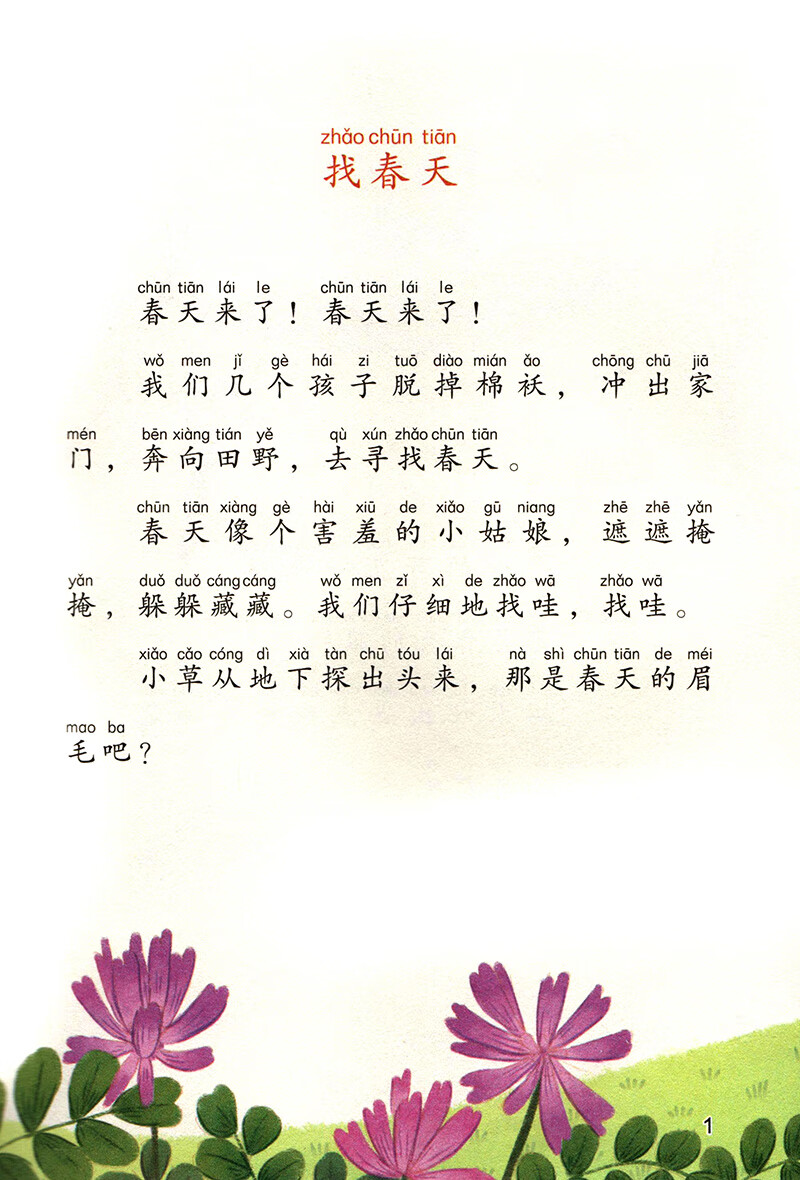 zhǎo chūn tiān
找春天
chūn tiān lái le chūn tiān lái le
春天来了！春天来了！
wǒ men jǐ gè hái zi tuō diào mián ǎo chōng chū jiā
我们几个孩子脱掉棉袄，冲出家
mén bēn xiàng tián yě qù xún zhǎo chūn tiān
门，奔向田野，去寻找春天。
chūn tiān xiàng gè hài xiū de xiǎo gū niang zhē zhē yǎn
春天像个害羞的小姑娘，遮遮掩
yǎn duǒ duǒ cáng cáng wǒ men zǐ xì de zhǎo wā zhǎo wā
掩，躲躲藏藏。我们仔细地找哇，找哇。
xiǎo cǎo cóng dì xià tàn chū tóu lái nà shì chūn tiān de méi
小草从地下探出头来，那是春天的眉
mao ba
毛吧？
1